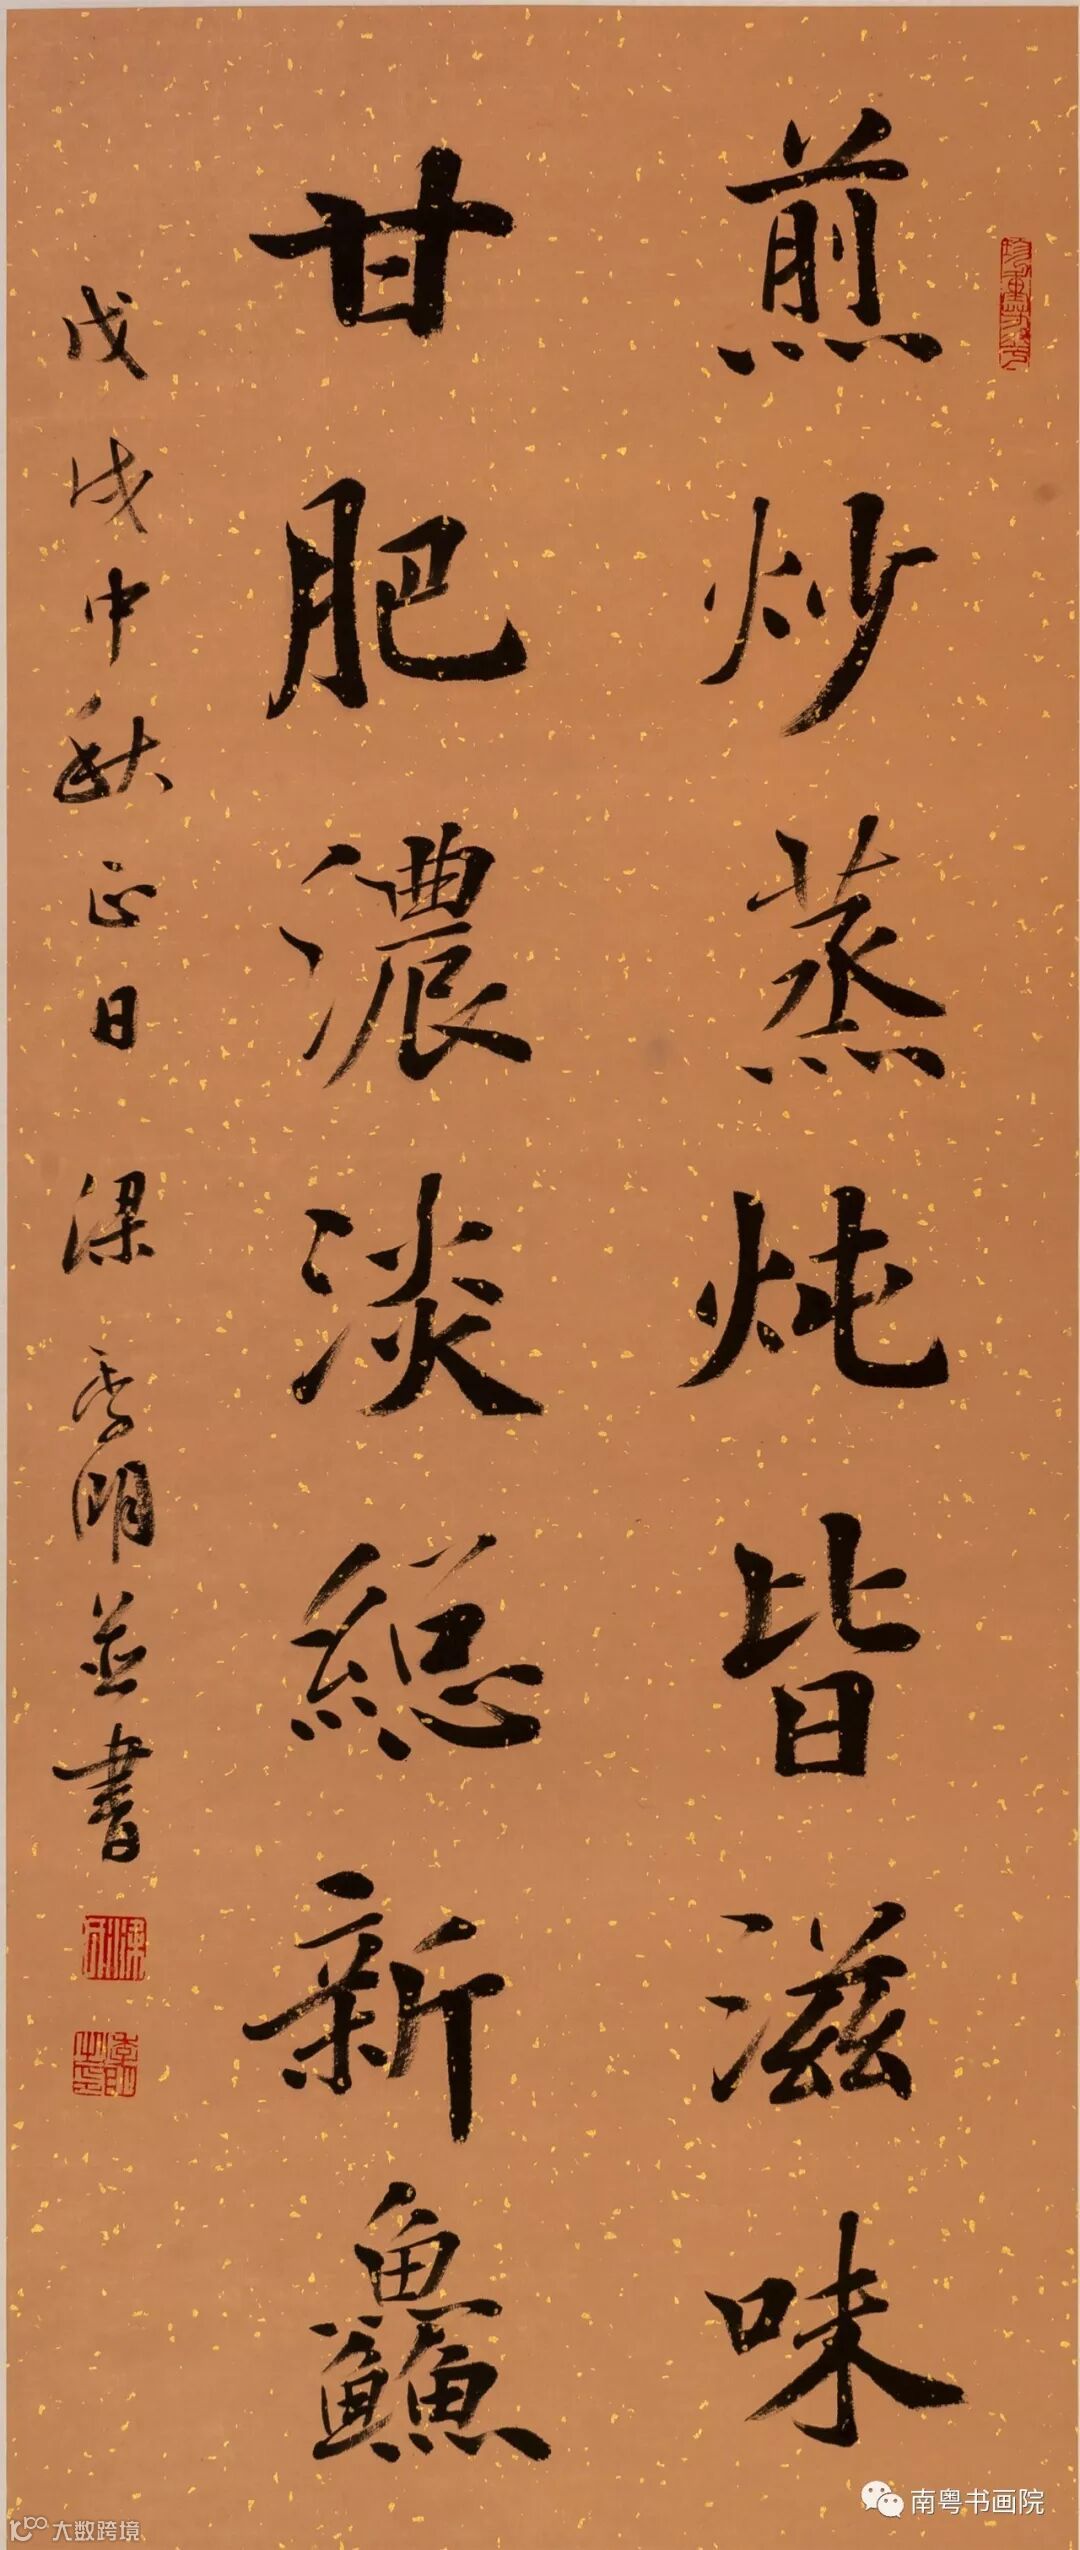 煎炒蒸炖皆滋味
甘肥濃淡總新鱻
戊戌中秋正日 梁季明並書
南粤书画院
大数跨境